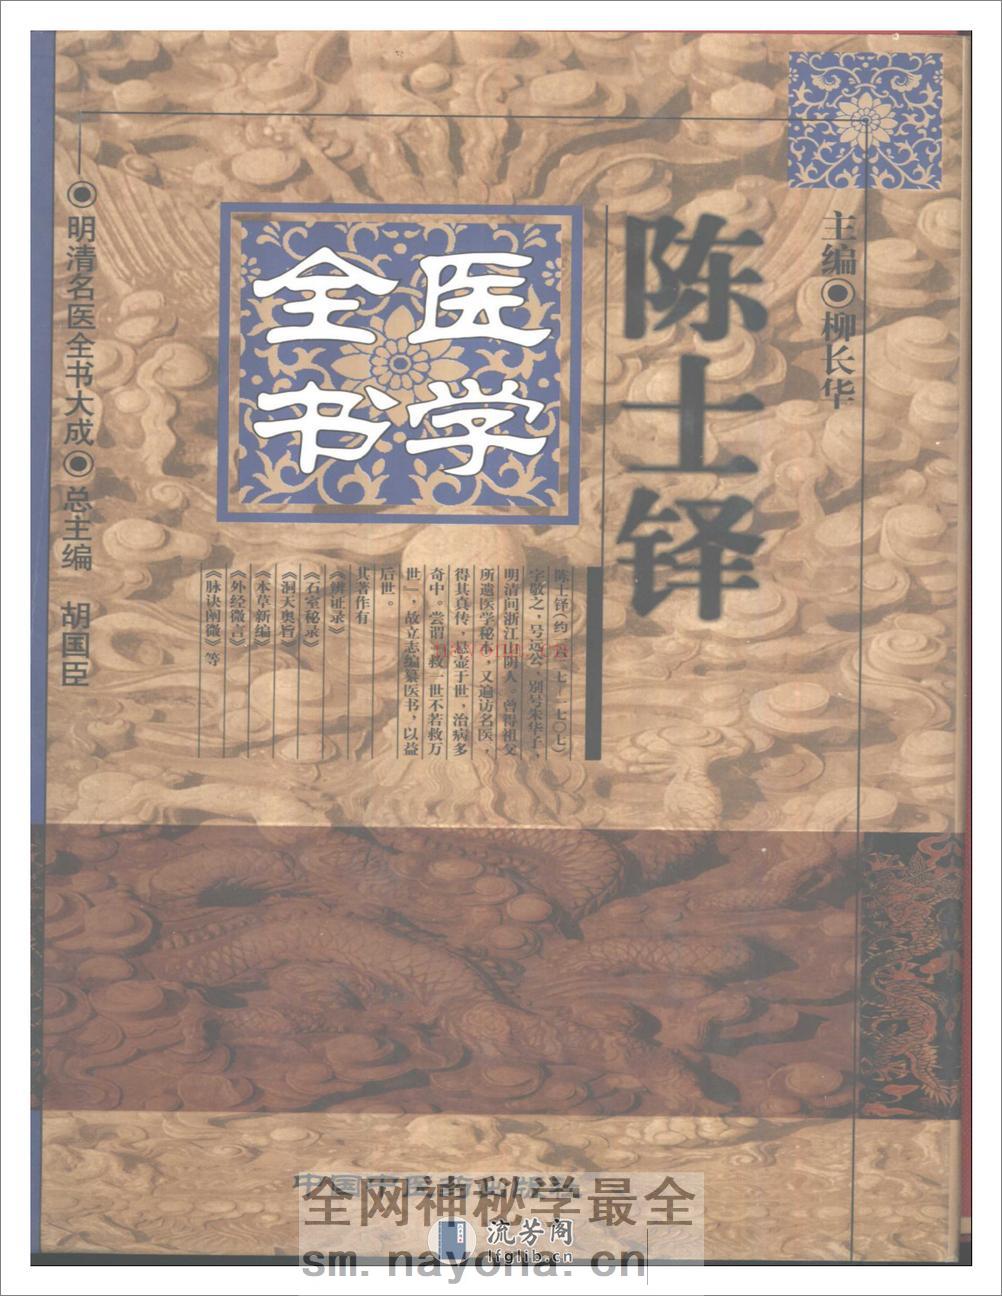 主编◉柳长华
陈士铎
医学
全书
陈士铎(约一六二七—一七〇七)
字敬之，号远公，别号朱华子，
明清间浙江山阴人。曾得祖父
所遗医学秘本，又遍访名医，
得其真传，悬壶于世，治病多
奇中。尝谓“救一世不若救万
世”，故立志编纂医书，以益
后世。
其著作有
《辨证录》
《石室秘录》
《洞天奥旨》
《本草新编》
《外经微言》
《脉诀阐微》等
◉明清名医全书大成◉总主编 胡国臣
nayona.cn
全网神秘学最全
流芳阁
lfglib.cn
sm.nayona.cn